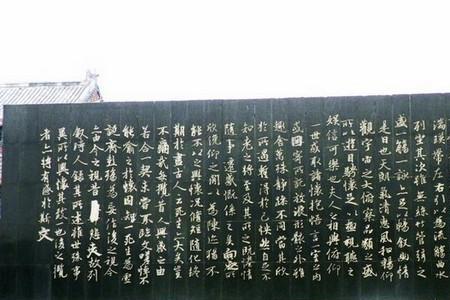 湍暎帶左右引以為流觴曲水
列坐其次雖無絲竹管弦之
盛一觴一詠亦足以暢敘幽情
是日也天朗氣清惠風和暢仰
觀宇宙之大俯察品類之盛
所以遊目騁懷足以極視聽之
娛信可樂也夫人之相與俯仰
一世或取諸懷抱悟言一室之內
或因寄所託放浪形骸之外雖
趣舍萬殊靜躁不同當其欣
於所遇暫得於己快然自足不
知老之將至及其所之既惓情
隨事遷感慨係之矣向之所
欣俛仰之間以為陳迹猶不
能不以之興懷況脩短隨化終
期於盡古人云死生亦大矣豈
不痛哉每攬昔人興感之由
若合一契未嘗不臨文嗟悼不
能喻之於懷固知一死生為虛
誕齊彭殤為妄作後之視今
亦由今之視昔悲夫故列
敘時人錄其所述雖世殊事
異所以興懷其致一也後之攬
者亦將有感於斯文